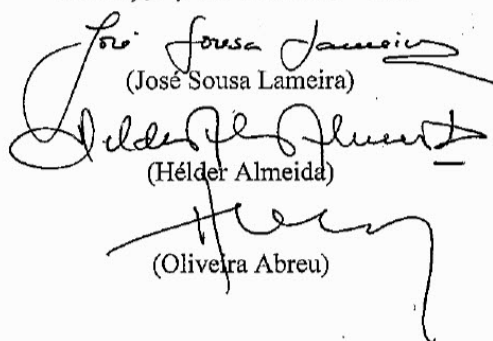 José Sousa Lameira
(José Sousa Lameira)
Hélder Almeida
(Hélder Almeida)
(Oliveira Abreu)